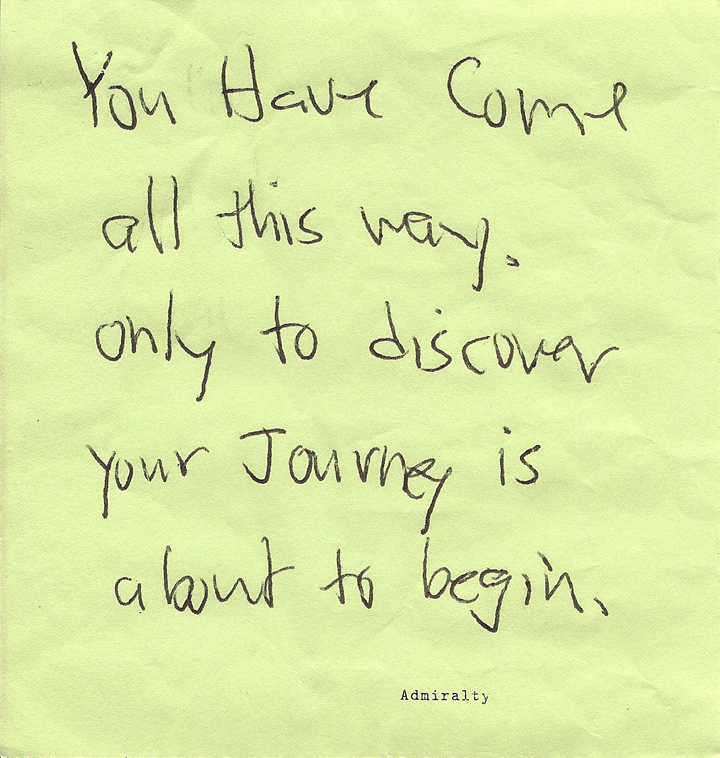 You Have Come
all this way.
only to discover
your Journey is
about to begin.
Admiralty